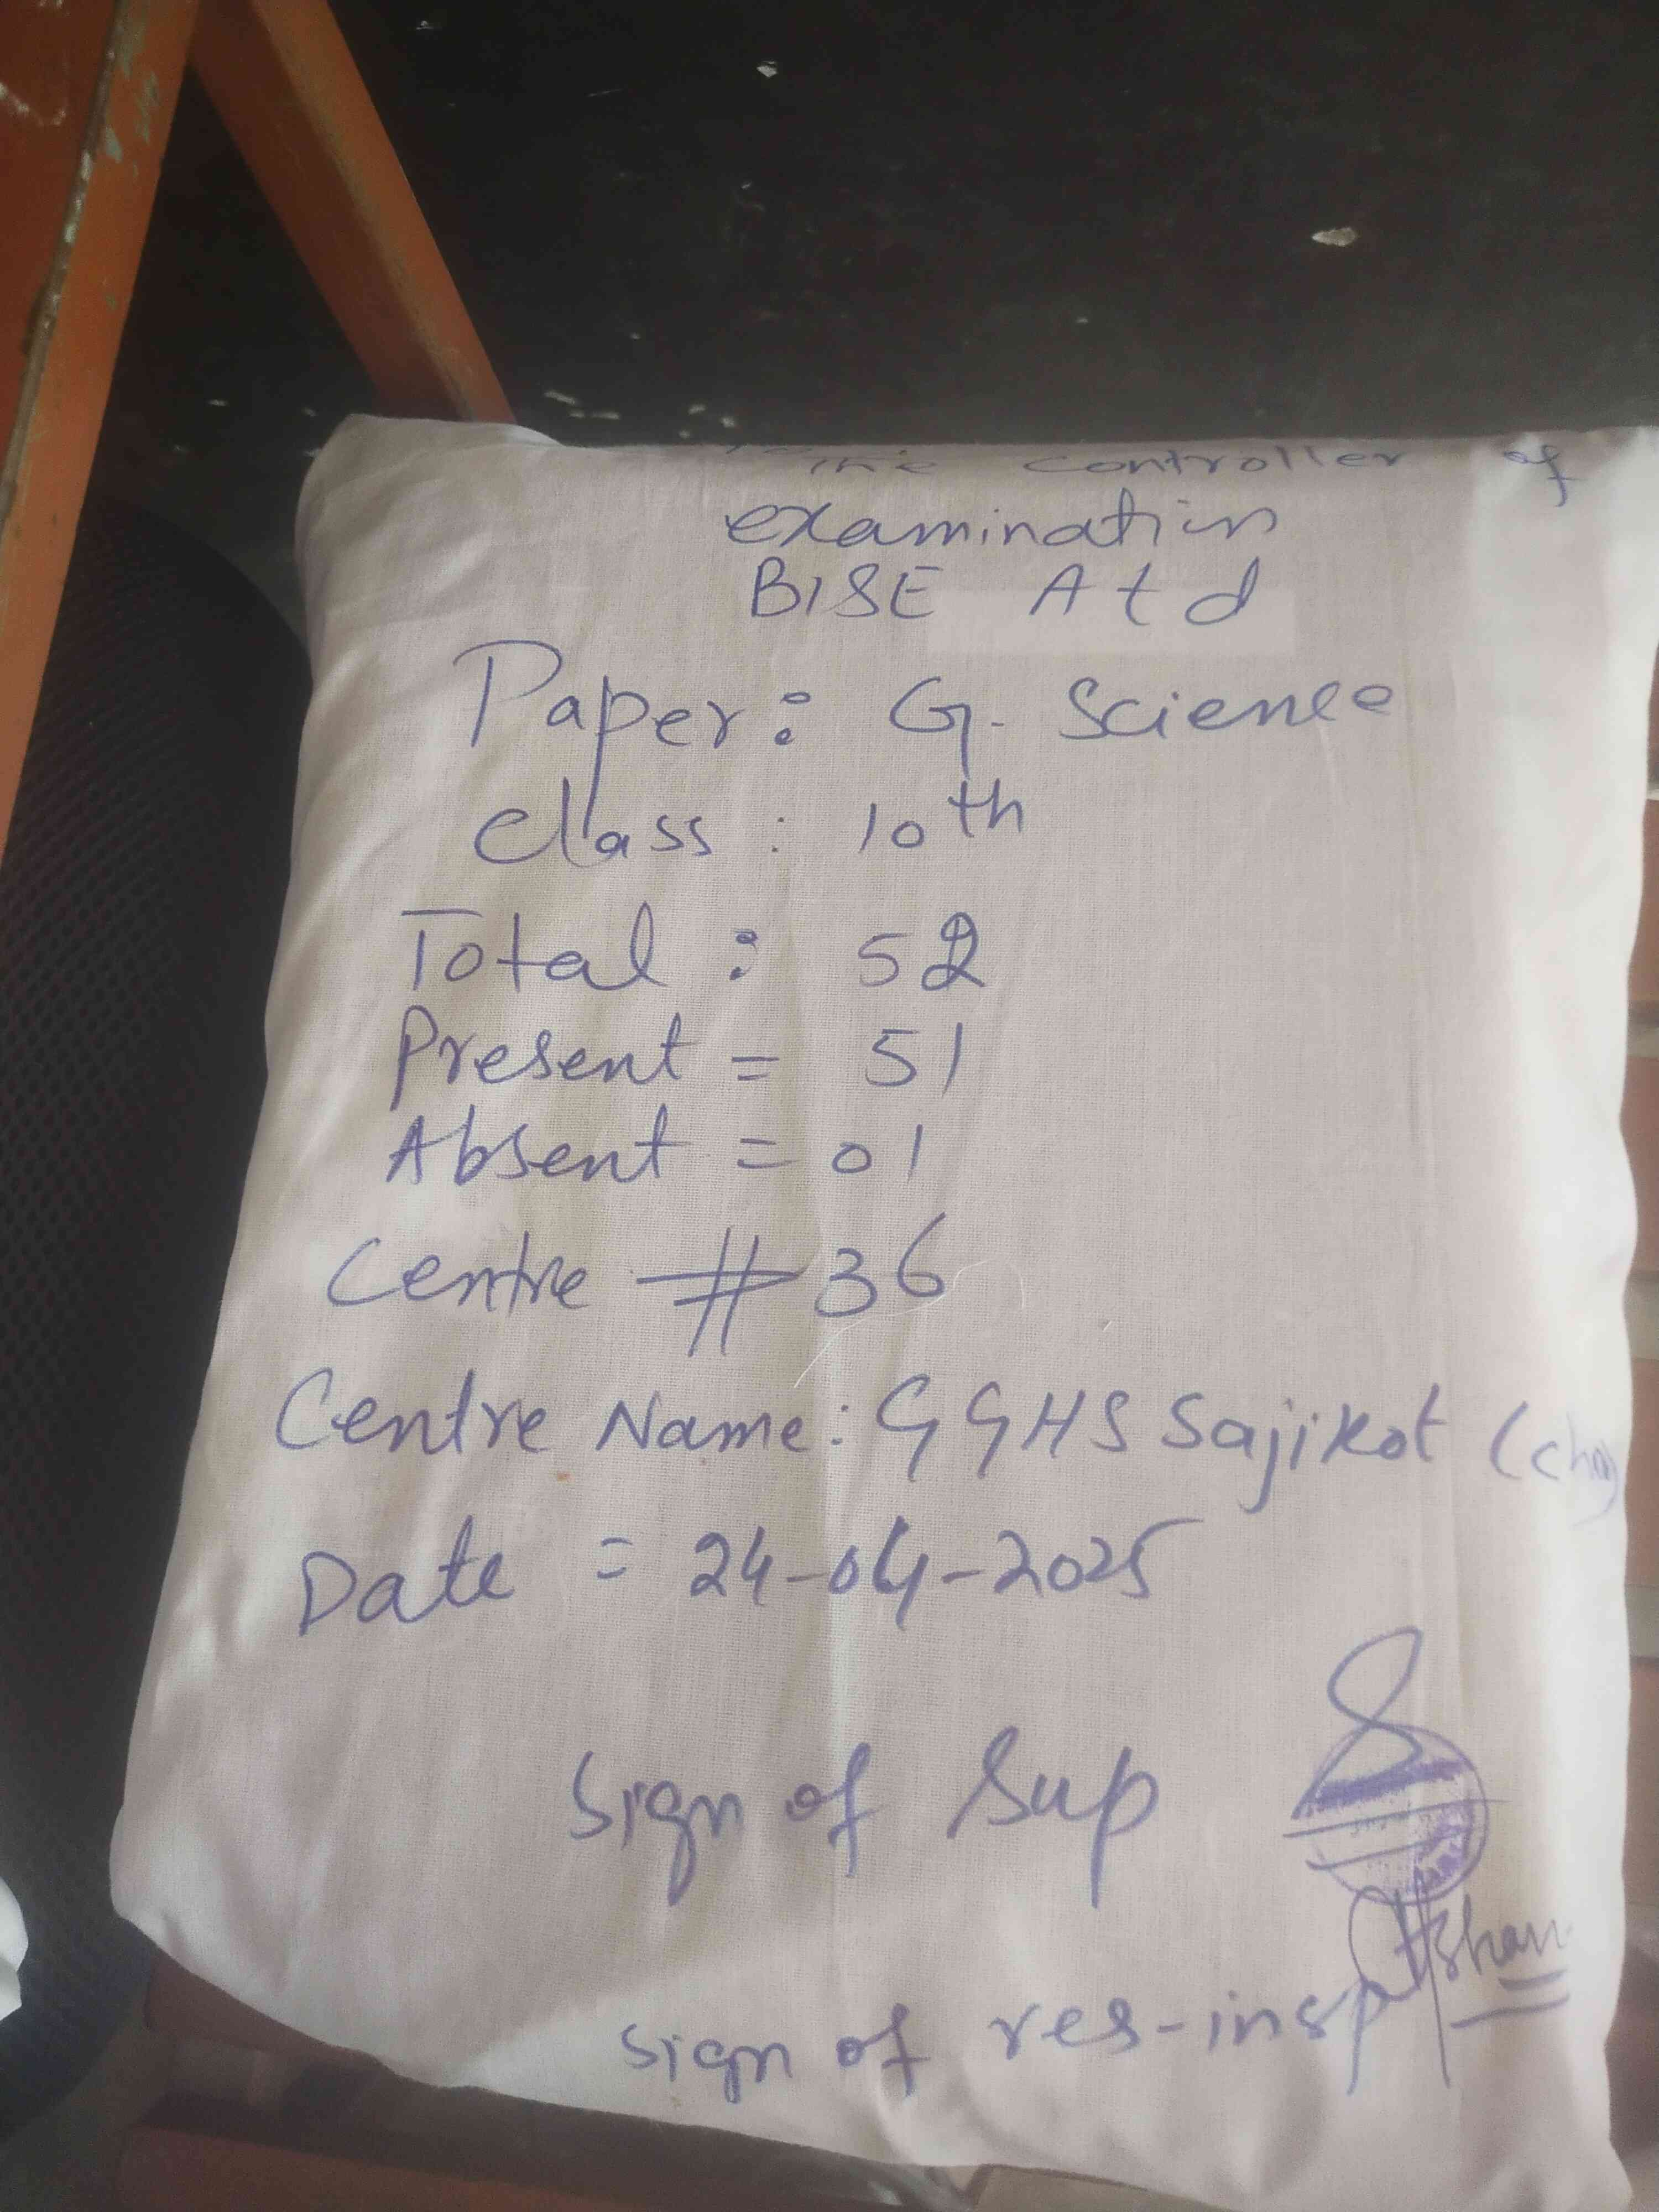 The controller of
examination
BISE Atd
Paper: G. Science
Class: 10th
Total: 52
Present = 51
Absent = 01
Centre # 36
Centre Name: GGHS Sajikot
Date = 24-04-2025
Sign of Sup
Sign of res-insp